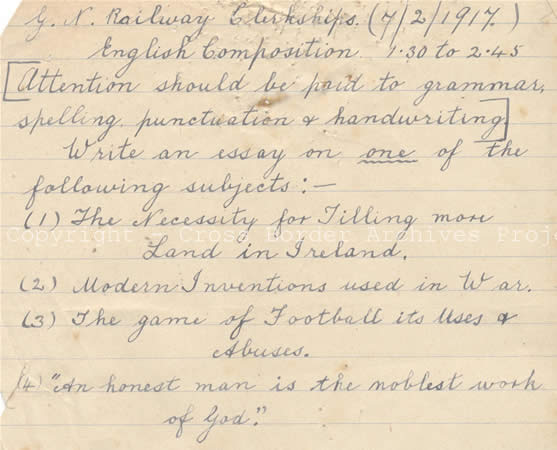 G. N. Railway Clerkships. (7/2/1917.)
English Composition 1.30 to 2.45
[Attention should be paid to grammar,
spelling, punctuation & handwriting]
Write an essay on one of the
following subjects:—
(1) The Necessity for Tilling more
Copyright - Cross Border Archives Proj
Land in Ireland.
(2) Modern Inventions used in War.
(3) The game of Football its Uses &
Abuses.
(4) "An honest man is the noblest work
of God."